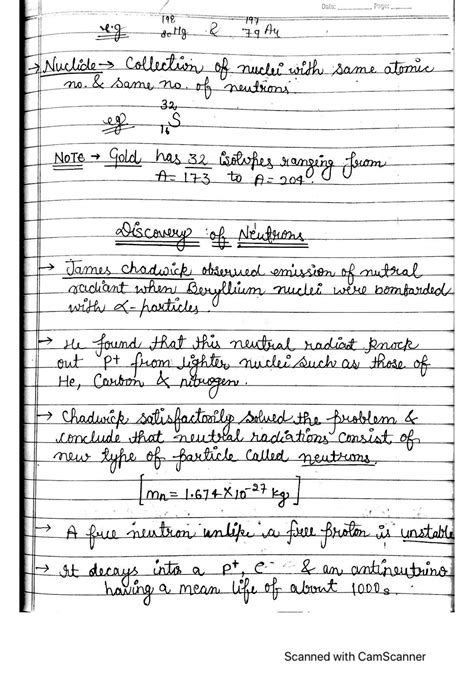 Date: Page:
e.g ¹⁹⁸₈₀Hg & ¹⁹⁷₇₉Au
→ Nuclide → Collection of nuclei with same atomic
no. & same no. of neutrons.
eg ³²₁₆S
NOTE → Gold has 32 isotopes ranging from
A= 173 to A= 204.
Discovery of Neutrons
→ James Chadwick observed emission of nutral
radiant when Beryllium nuclei were bombarded
with α- particles.
→ He found that this neutral radiant knock
out P+ from lighter nuclei such as those of
He, Carbon & nitrogen.
→ Chadwick satisfactorily solved the problem &
conclude that neutral radiations consist of
new type of particle called neutrons.
[mn = 1.674 X 10⁻²⁷ kg]
→ A free neutron unlike a free proton is unstable
→ It decays into a P+, e⁻ & an antineutrino
having a mean life of about 1000s.
Scanned with CamScanner